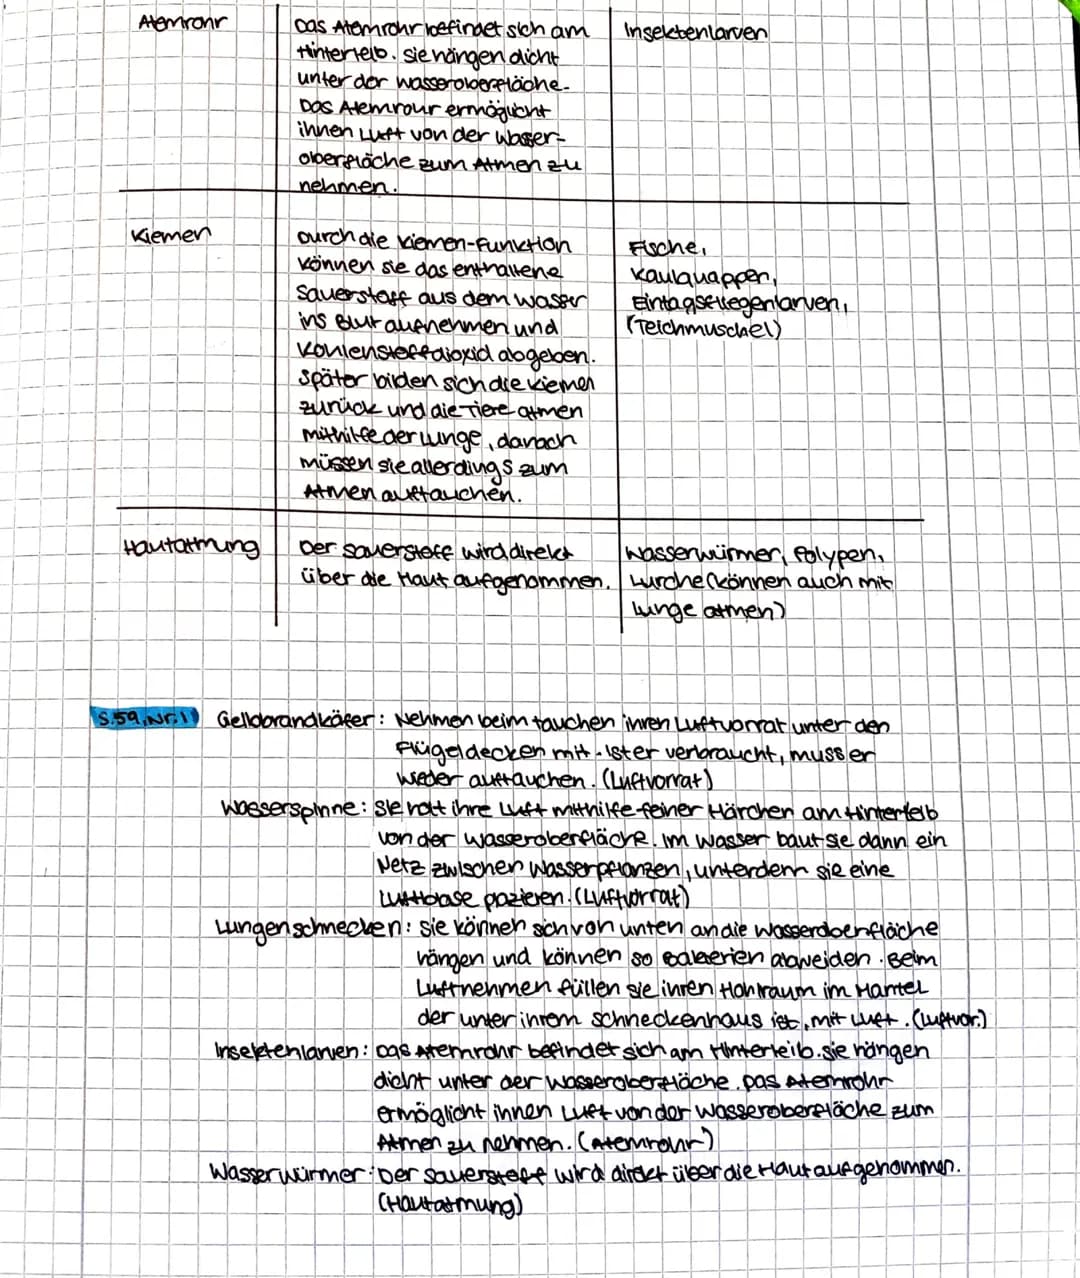 Atemrohr
Das Atemrohr befindet sich am
Hinterleib. Sie hängen dicht
unter der Wasseroberfläche.
Das Atemrour ermöglicht
ihnen Luft von der Wasser-
oberfläche zum Atmen zu
nehmen.
Insektenlarven
Kiemen
Durch die Kiemen-Funktion
können sie das enthaltene
Sauerstoff aus dem Wasser
ins Blut aufnehmen und
Kohlenstoffdioxid abgeben.
Später bilden sich die Kiemen
zurück und die Tiere atmen
mithilfe der Lunge, danach
müssen sie allerdings zum
Atmen auftauchen.
Fische,
Kaulquappen,
Eintagsfliegenlarven,
(Teichmuschel)
Hautatmung
Der Sauerstoff wird direkt
über die Haut aufgenommen.
Wasserwürmer, Polypen,
Lurche (können auch mit
Lunge atmen)
S.59, Nr.1) Gelbbrandkäfer: Nehmen beim tauchen ihren Luftvorrat unter den
Flügeldecken mit. Ist er verbraucht, muss er
wieder auftauchen. (Luftvorrat)
Wasserspinne: Sie holt ihre Luft mithilfe feiner Härchen am Hinterleib
von der Wasseroberfläche. Im Wasser baut sie dann ein
Netz zwischen Wasserpflanzen, unterdem sie eine
Luftblase pazieren. (Luftvorrat)
Lungenschnecken: Sie können sich von unten an die Wasseroberfläche
hängen und können so Bakterien abweiden. Beim
Luftnehmen füllen sie ihren Hohlraum im Mantel
der unter ihrem Schneckenhaus ist, mit Luft. (Luftvor.)
Insektenlarven: Das Atemrohr befindet sich am Hinterleib. Sie hängen
dicht unter der Wasseroberfläche. Das Atemrohr
ermöglicht ihnen Luft von der Wasseroberfläche zum
Atmen zu nehmen. (Atemrohr)
Wasserwürmer: Der Sauerstoff wird direkt über die Haut aufgenommen.
(Hautatmung)